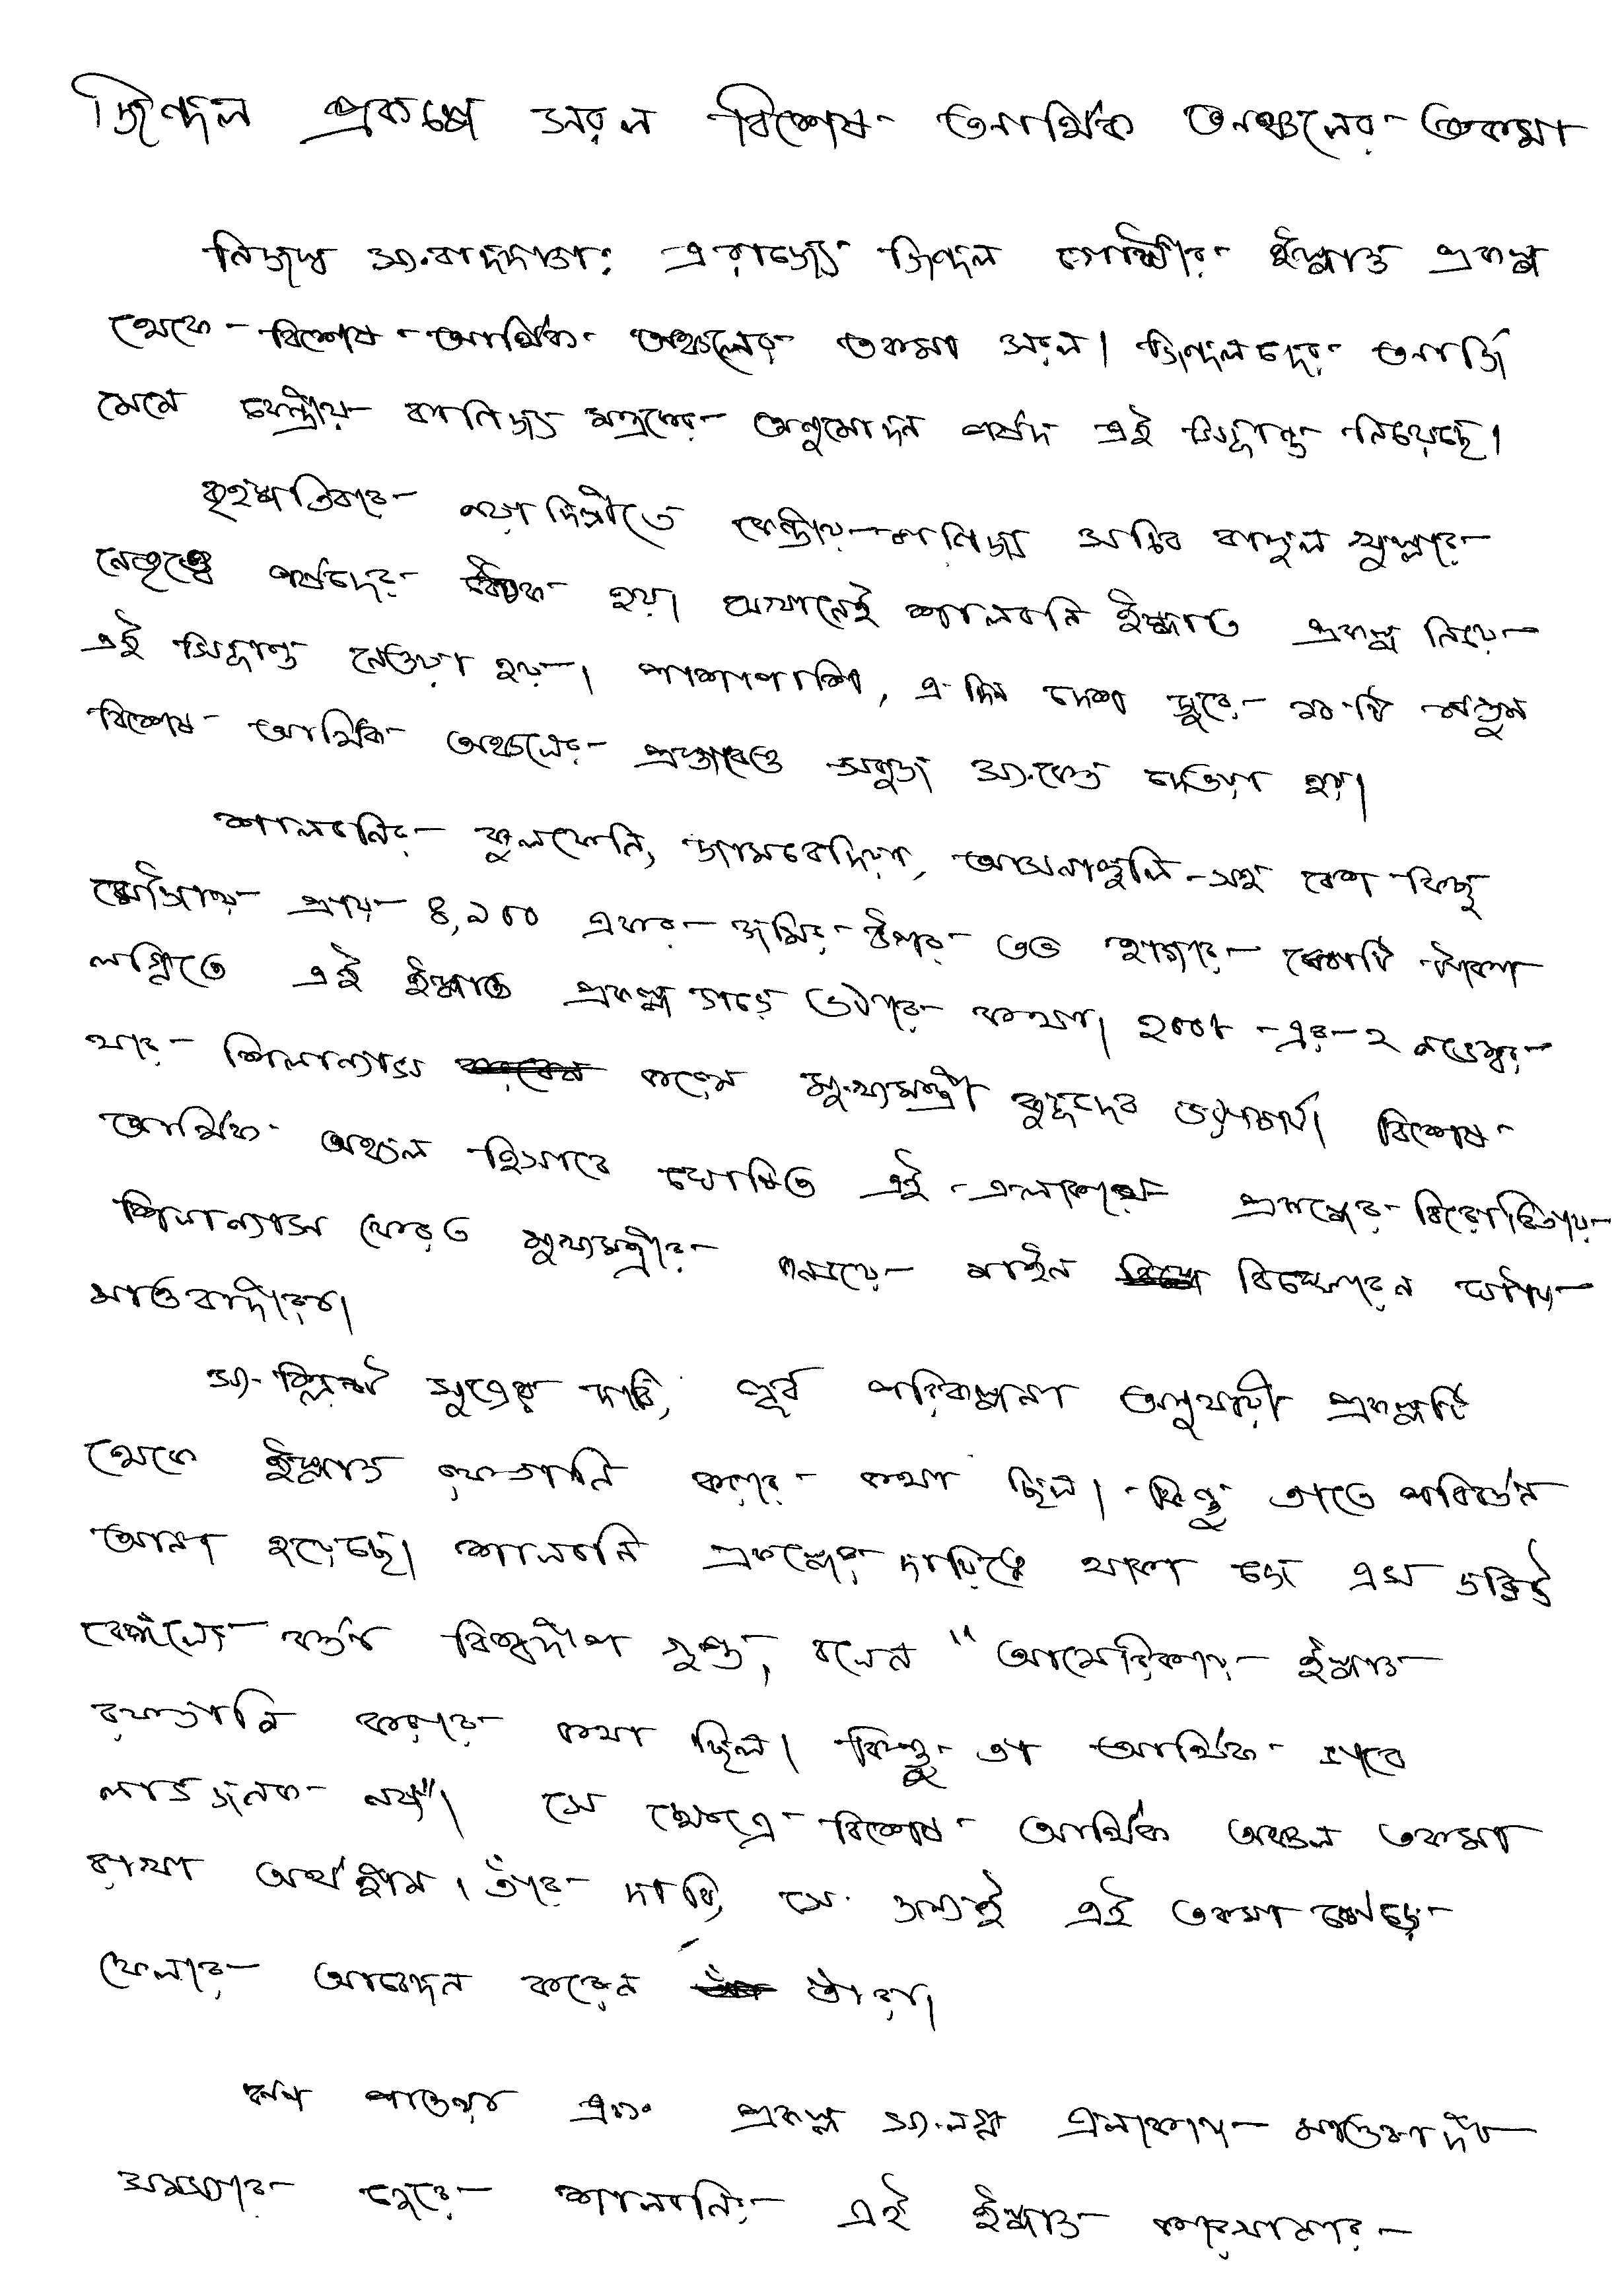 জিন্দল প্রকল্পে সরল বিশেষ আর্থিক অঞ্চলের তকমা
নিজস্ব সংবাদদাতা: এ রাজ্যে জিন্দল গোষ্ঠীর ইস্পাত প্রকল্প
থেকে বিশেষ আর্থিক অঞ্চলের তকমা সরল। জিন্দলদের আর্জি
মেনে কেন্দ্রীয় বাণিজ্য মন্ত্রকের অনুমোদন পর্ষদ এই সিদ্ধান্ত নিয়েছে।
বৃহস্পতিবার নয়াদিল্লীতে কেন্দ্রীয় বানিজ্য সচিব রাহুল খুল্লারের
নেতৃত্বে পর্ষদের বৈঠক হয়। সেখানেই শালবনি ইস্পাত প্রকল্প নিয়ে
এই সিদ্ধান্ত নেওয়া হয়। পাশাপাশি, এ দিন দেশ জুড়ে ১১টি নতুন
বিশেষ আর্থিক অঞ্চলের প্রস্তাবেও সবুজ সংকেত দেওয়া হয়।
শালবনির কুলফেনি, জামবেদিয়া, আসনাশুলি-সহ বেশ কিছু
মৌজায় প্রায় ৪,৯০০ একর জমির উপর ৩৫ হাজার কোটি টাকা
লগ্নিতে এই ইস্পাত প্রকল্প গড়ে ওঠার কথা। ২০০৮-এর ২ নভেম্বর
যার শিলান্যাস করেন মুখ্যমন্ত্রী বুদ্ধদেব ভট্টাচার্য। বিশেষ
আর্থিক অঞ্চল হিসাবে ঘোষিত এই এলাকায় প্রকল্পের বিরোধিতায়
শিলান্যাস ফেরত মুখ্যমন্ত্রীর কনভয়ে মাইন বিস্ফোরন ঘটায়
মাওবাদীরা।
সংশ্লিষ্ট সূত্রের দাবি, পূর্ব পরিকল্পনা অনুযায়ী প্রকল্পটি
থেকে ইস্পাত রফতানি করার কথা ছিল। কিন্তু তাতে পরিবর্তন
আনা হয়েছে। শালবনি প্রকল্পের দায়িত্বে থাকা জে এস ডব্লিউ
বেঙ্গলের কর্তা বিশ্বদীপ গুপ্ত, বলেন "আমেরিকায় ইস্পাত
রফতানি করার কথা ছিল। কিন্তু তা আর্থিক ভাবে
লাভজনক নয়"। সে ক্ষেত্রে বিশেষ আর্থিক অঞ্চল তকমা
রাখা অর্থহীন। তাঁর দাবি, সে জন্যই এই তকমা ঝেড়ে
ফেলার আবেদন করেন তাঁরা।
ঋণ পাওয়া এবং প্রকল্প সংলগ্ন এলাকায় মাওবাদী
সমস্যার জেরে শালবনির এই ইস্পাত কারখানার